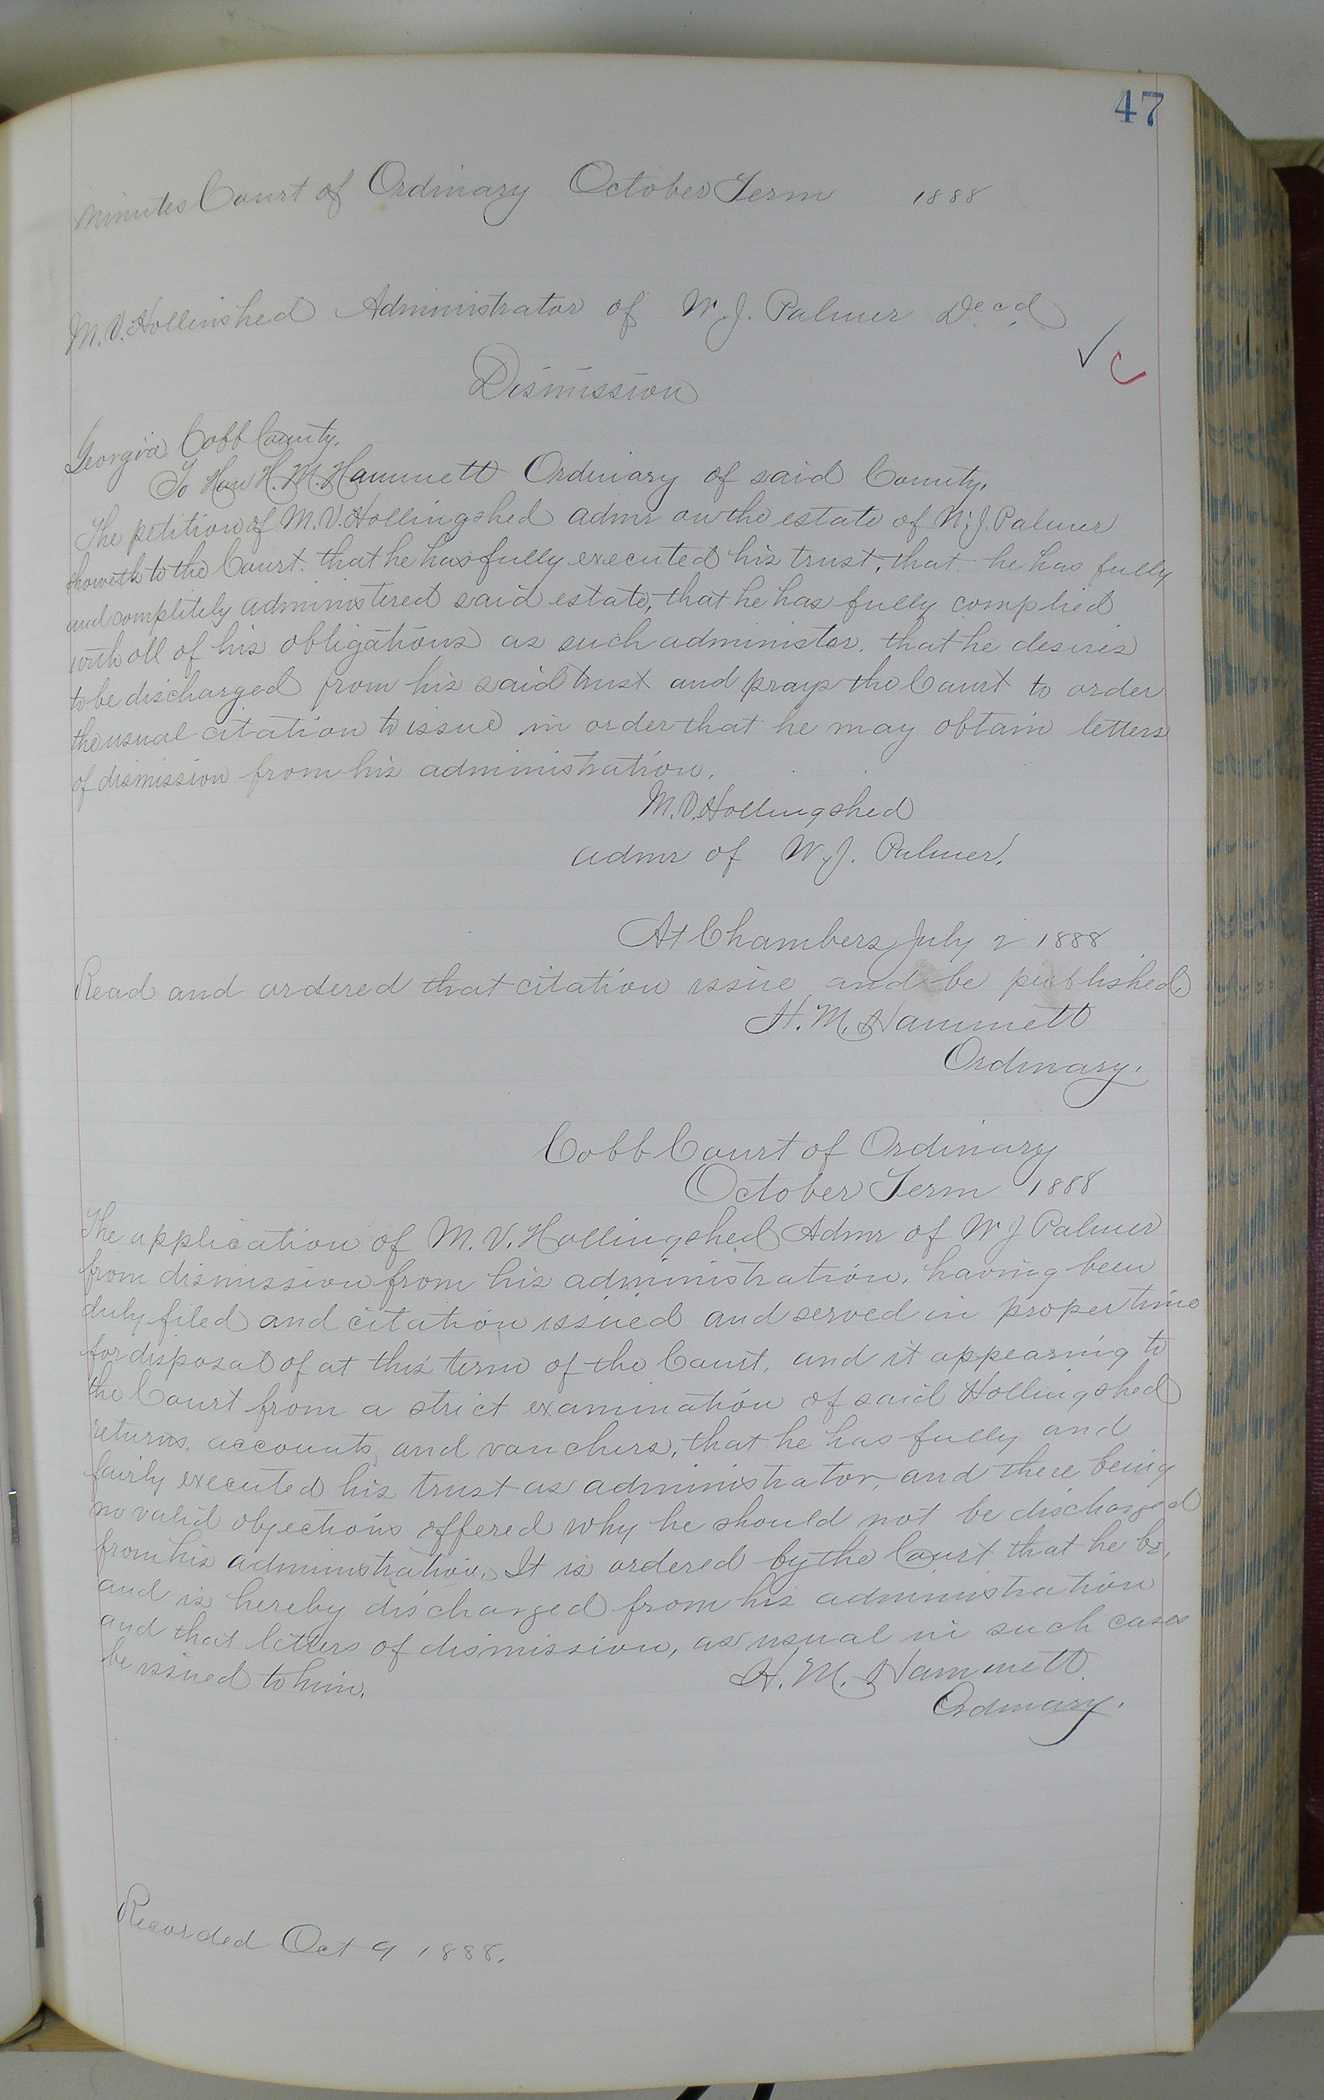 47
Minutes Court of Ordinary October Term 1888
M. V. Hollinshed Administrator of W. J. Palmer Decd
✓ C
Dismission
Georgia Cobb County.
To Hon H. M. Hammett Ordinary of said County.
The petition of M. V. Hollingshed admr on the estate of W. J. Palmer
showeth to the Court. that he has fully executed his trust, that he has fully
and complitely administered said estate, that he has fully complied
with all of his obligations as such administor. that he desires
to be discharged from his said trust and prays the Court to order
the usual citation to issue in order that he may obtain letters
of dismission from his administration.
M. V. Hollingshed
admr of W. J. Palmer.
At Chambers July 2 1888
Read and ordered that citation issue and be published.
H. M. Hammett
Ordinary.
Cobb Court of Ordinary
October Term 1888
The application of M. V. Hollingshed Admr of W J Palmer
from dismission from his administration, having been
duly filed and citation issued and served in proper time
for disposal of at this term of the Court. and it appearing to
the Court from a strict examination of said Hollingshed
returns, accounts, and vanchers, that he has fully and
fairly executed his trust as administrator, and there being
no valid objections offered why he should not be discharged
from his administration. It is ordered by the Court that he be,
and is hereby discharged from his administration
and that letters of dismission, as usual in such cases
be issued to him.
H. M. Hammett
Ordinary.
Recorded Oct 9 1888.